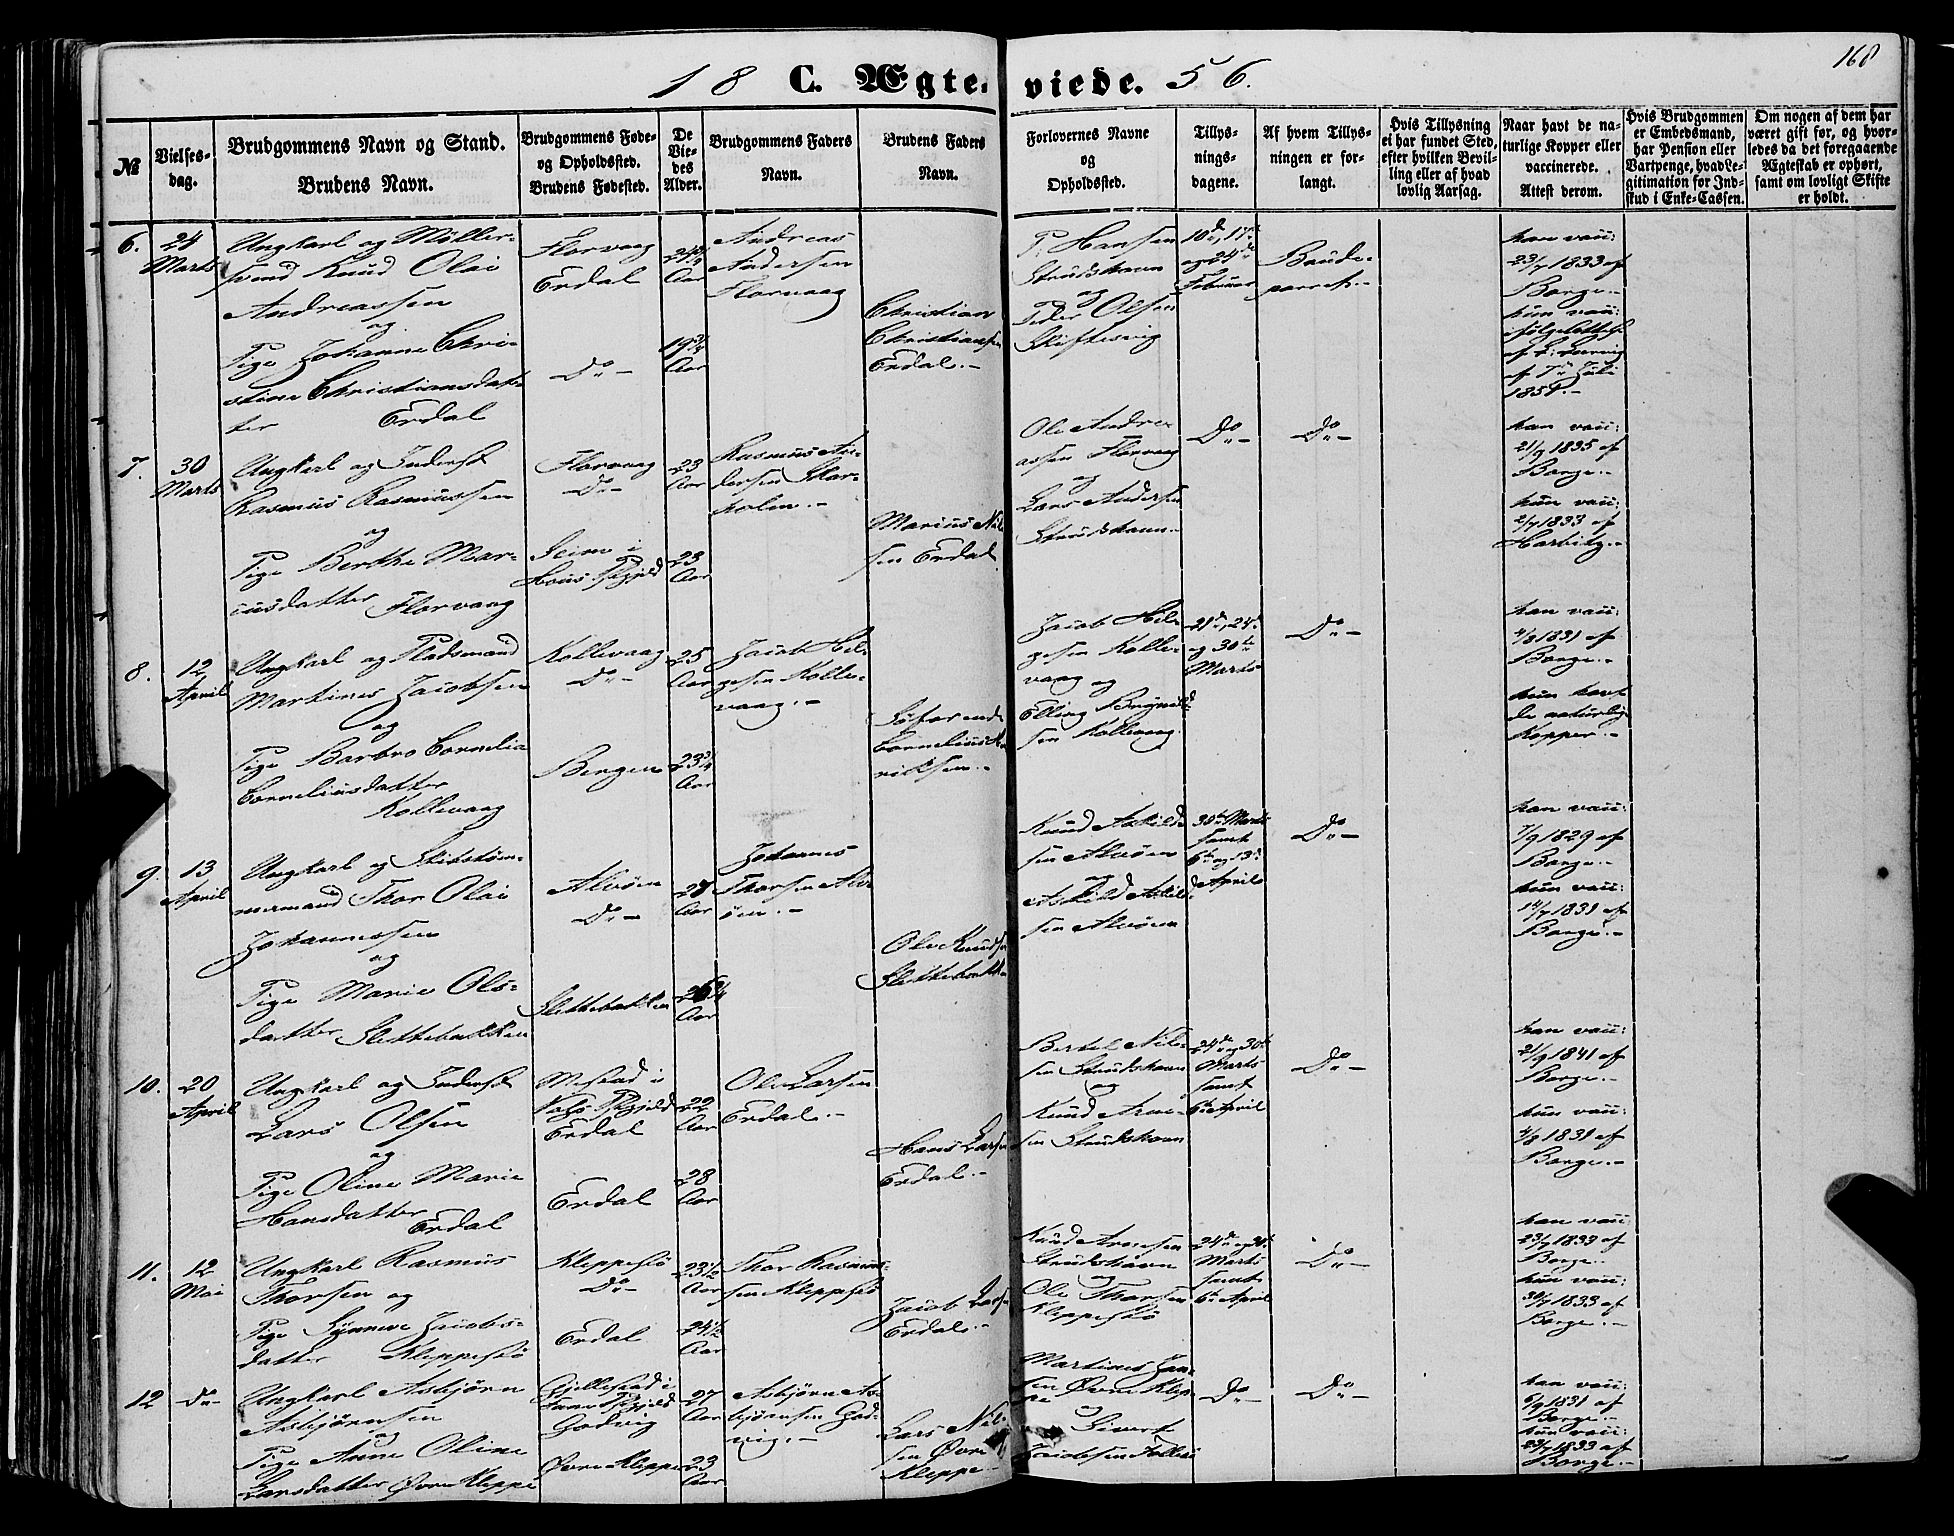 168
18 C. Ægte- viede. 56.
№
Vielses-
dag.
Brudgommens Navn og Stand.
Brudens Navn.
Brudgommens Føde-
og Opholdssted.
Brudens Fødested.
De
Vie-
des
Alder.
Brudgommens Faders
Navn.
Brudens Faders
Navn.
Forlovernes Navne
og
Opholdssted.
Tillys-
nings-
dagene.
Af hvem Tillys-
ningen er for-
langt.
Hvis Tillysning
ei har fundet Sted,
efter hvilken Bevil-
ling eller af hvad
lovlig Aarsag.
Naar havt de na-
turlige Kopper eller
vaccinerede.
Attest derom.
Hvis Brudgommen
er Embedsmand,
har Pension eller
Vartpenge, hvad Le-
gitimation for Ind-
skud i Enke-Cassen.
Om nogen af dem har
været gift før, og hvor-
ledes da det foregaaende
Ægteskab er ophørt,
samt om lovligt Skifte
er holdt.
6.
24
Marts
Ungkarl og Møller-
svend Knud Olai
Andreassen
og
Pige Johanne Chri-
stine Christiansdat-
ter Erdal
Florvaag
Erdal
Do -
24
Aar
19 3/4
Aar
Andreas
Andersen
Florvaag
Christian
Christiansen
Erdal.-
P. Hansen
Strudshavn
og
Peder Olsen
Skiftesvig
10de, 17de
og 24de
Februar
Brude-
parret.-
han vacc:
23/7 1833 af
Borge.-
hun vacc:
ifølge Attest
af
af 7de Juli
185
7.
30
Marts
Ungkarl og Inderst
Rasmus Rasmussen
og
Pige Berthe Mar-
iusdatter Florvaag
Florvaag
Do -
Seim i
Hous Pgjeld
23
Aar
23
Aar
Rasmus An-
dersen Skar-
holm.-
Marius Niel-
sen Erdal
Ole Andre-
assen Florvaag
og
Lars Andersen
Strudshavn.-
Do -
Do -
han vacc:
21/9 1835 af
Borge.-
hun vacc:
2/7 1833 af
Harbitz.-
8.
12
April
Ungkarl og Pladsmand
Martines Jacobsen
og
Pige Barbro Cornelia
Corneliusdatter
Kollevaag
Kollevaag
Do -
Bergen
25
Aar
23 3/4
Aar
Jacob Hel-
gesen Kolle-
vaag.-
Søfarende
Cornelius
riksen.-
Jacob Hel-
gesen Kolle-
vaag og
Elling Brynild-
sen Kollevaag.
21de, 24de
og 30te
Marts
Do -
han vacc:
4/8 1831 af
Borge.-
hun havt
de naturlige
Kopper.-
9.
13
April
Ungkarl og Skibstøm-
mermand Thor Olai
Johannessen
og
Pige Marie Ols-
datter Slettebakken
Alvøen
Do -
Slettebakken
27
Aar
26 3/4
Aar
Johannes
Thorsen Alv-
øen.-
Ole Knudsen
Slettebakken
Knud Askild-
sen Alvøen
og
Askild Askild-
sen Alvøen
30te Marts
samt
6te og 13de
April
Do -
han vacc:
7/9 1829 af
Borge.-
hun vacc:
14/7 1831 af
Borge.-
10.
20
April
Ungkarl og Inderst
Lars Olsen
og
Pige Oline Marie
Hansdatter Erdal
Mestad i
Vos's Pgjeld
Erdal
Erdal
22
Aar
28
Aar
Ole Larsen
Erdal.-
Hans Larsen
Erdal.-
Bertel Niel-
sen Strudshavn
og
Knud Arne-
sen Strudshavn
24de og 30te
Marts
samt
6te April
Do -
han vacc:
21/9 1841 af
Borge.-
hun vacc:
4/8 1831 af
Borge.-
11.
12
Mai
Ungkarl Rasmus
Thorsen og
Pige Synneve Jacobs-
datter Kleppestø
Kleppestø
Do -
Erdal
23 1/2
Aar
24 1/2
Aar
Thor Rasmus-
sen Kleppestø
Jacob Larsen
Erdal.-
Knud Arnesen
Strudshavn
og
Ole Thorsen
Kleppestø
24de og 30te
Marts
samt
6te April
Do -
han vacc:
23/7 1833 af
Borge.-
hun vacc:
30/7 1833 af
Borge.-
12
Do -
Ungkarl Asbjørn
Asbjørnsen
og
Pige Anne Oline
Larsdatter Øvre Kleppe
Gjellestad i
Fane Pgjeld
Godvig
Øvre Kleppe
27
Aar
23
Aar
Asbjørn As-
bjørnsen God-
vig.-
Lars Niel-
sen Øvre
Kleppe.-
Martines Jan-
sen Øvre Klep-
pe
og
Sivert
Jacobsen Follesø
Do -
Do -
han vacc:
6/9 1831 af
Borge.-
hun vacc:
23/7 1833 af
Borge.-